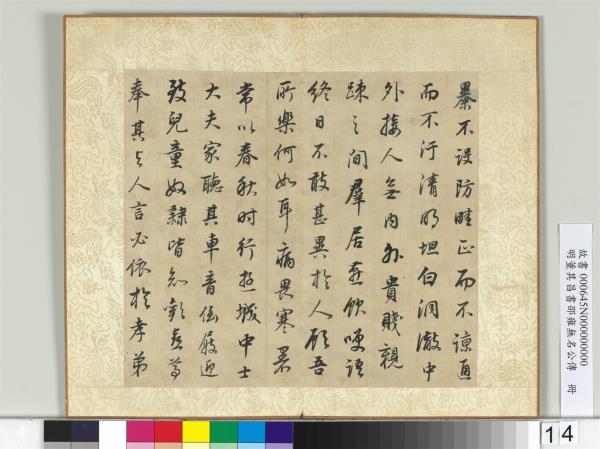 暴不設防畦正而不諒通
而不汙清明坦白洞澈中
外接人無內外貴賤親
疎之間羣居燕飲哽語
終日不敢甚異於人顧吾
所樂何如耳病畏寒暑
常以春秋時行遊城中士
大夫家聽其車音倒屐迎
致兒童奴隸皆知歡喜尊
奉其與人言必依於孝弟
故書000645N000000000
明董其昌書邵雍無名公傳 冊
14